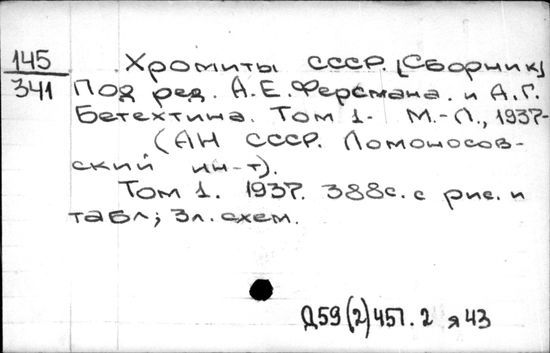 145
341
Хромиты СССР. [Сборник]
Под ред. А.Е.Ферсмана. и А.Г.
Бетехтина. Том 1- М.-Л., 1937-
(АН СССР. Ломоносов-
ский ин-т).
Том 1. 1937. 388с. с рис. и
табл; 3л. схем.
Д59(2)451.2 я43